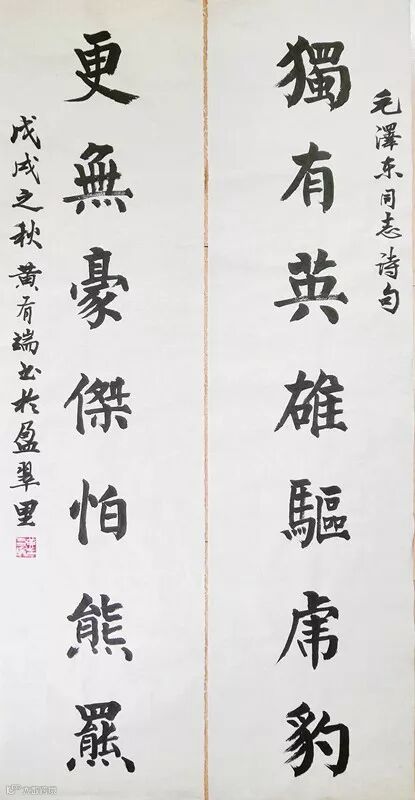 毛澤东同志诗句
獨有英雄驅虎豹
更無豪傑怕熊羆
戊戌之秋 黄有端书於盈翠里